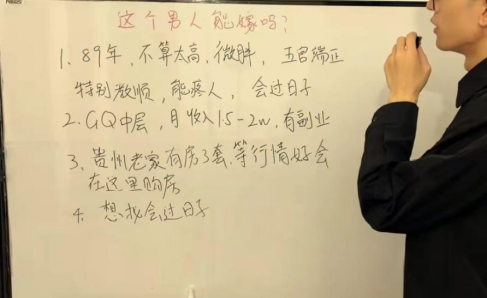 这个男人能嫁吗?
1. 89年, 不算太高, 微胖, 五官端正
特别孝顺, 能疼人, 会过日子
2. GQ中层, 月收入1.5-2w, 有副业
3. 贵州老家有房3套, 等行情好会
在这里购房
4. 想找会过日子